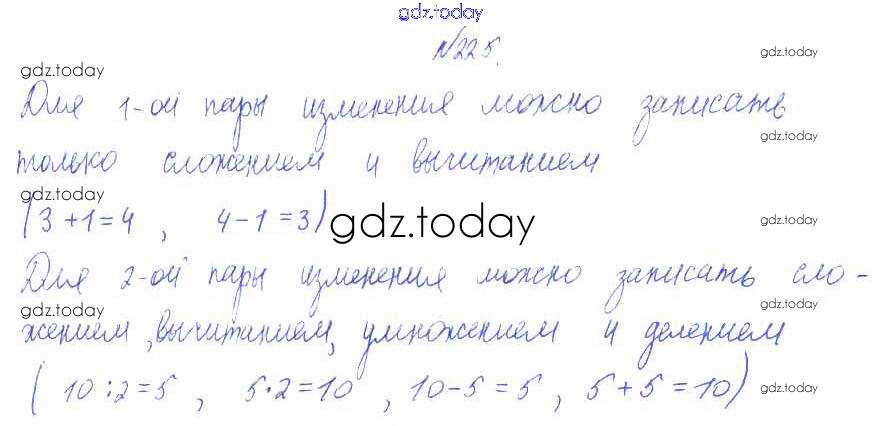 gdz.today
№225.
gdz.today
gdz.today
Для 1-ой пары изменения можно записать
gdz.today
только сложением и вычитанием
gdz.today
(3+1=4, 4-1=3)
gdz.today
gdz.today
Для 2-ой пары изменения можно записать сло-
gdz.today
gdz.today
жением, вычитанием, умножением и делением
(10:2=5, 5·2=10, 10-5=5, 5+5=10)
gdz.today